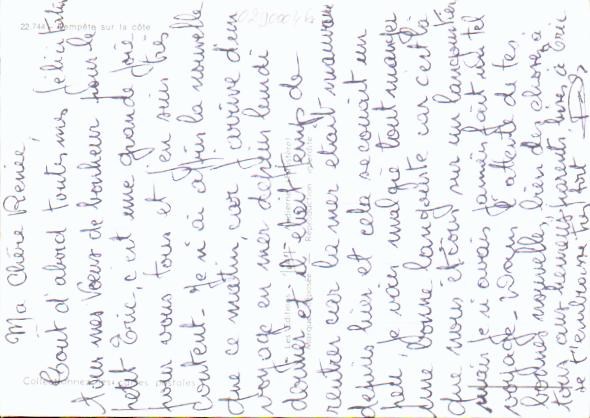 Ma Chère Renée,
Tout d'abord toutes mes félicitations
tous mes Voeux de bonheur pour le
petit Eric, c'est une grande joie
pour vous tous et j'en suis très
content. Je n'ai appris la nouvelle
que ce matin, car j'arrive d'un
voyage en mer depuis lundi
dernier et il était temps de
rentrer car la mer était mauvaise
depuis hier et cela secouait un
peu, je vais malgré tout manger
une bonne langouste car c'est là
que nous étions sur un langoustier
mais je n'avais jamais fait un tel
voyage. Dans l'attente de tes
bonnes nouvelles, bien des choses à
tous aux heureux parents, bises à Eric
je t'embrasse très fort
22.744 - Tempête sur la côte
Collectionnez les cartes postales